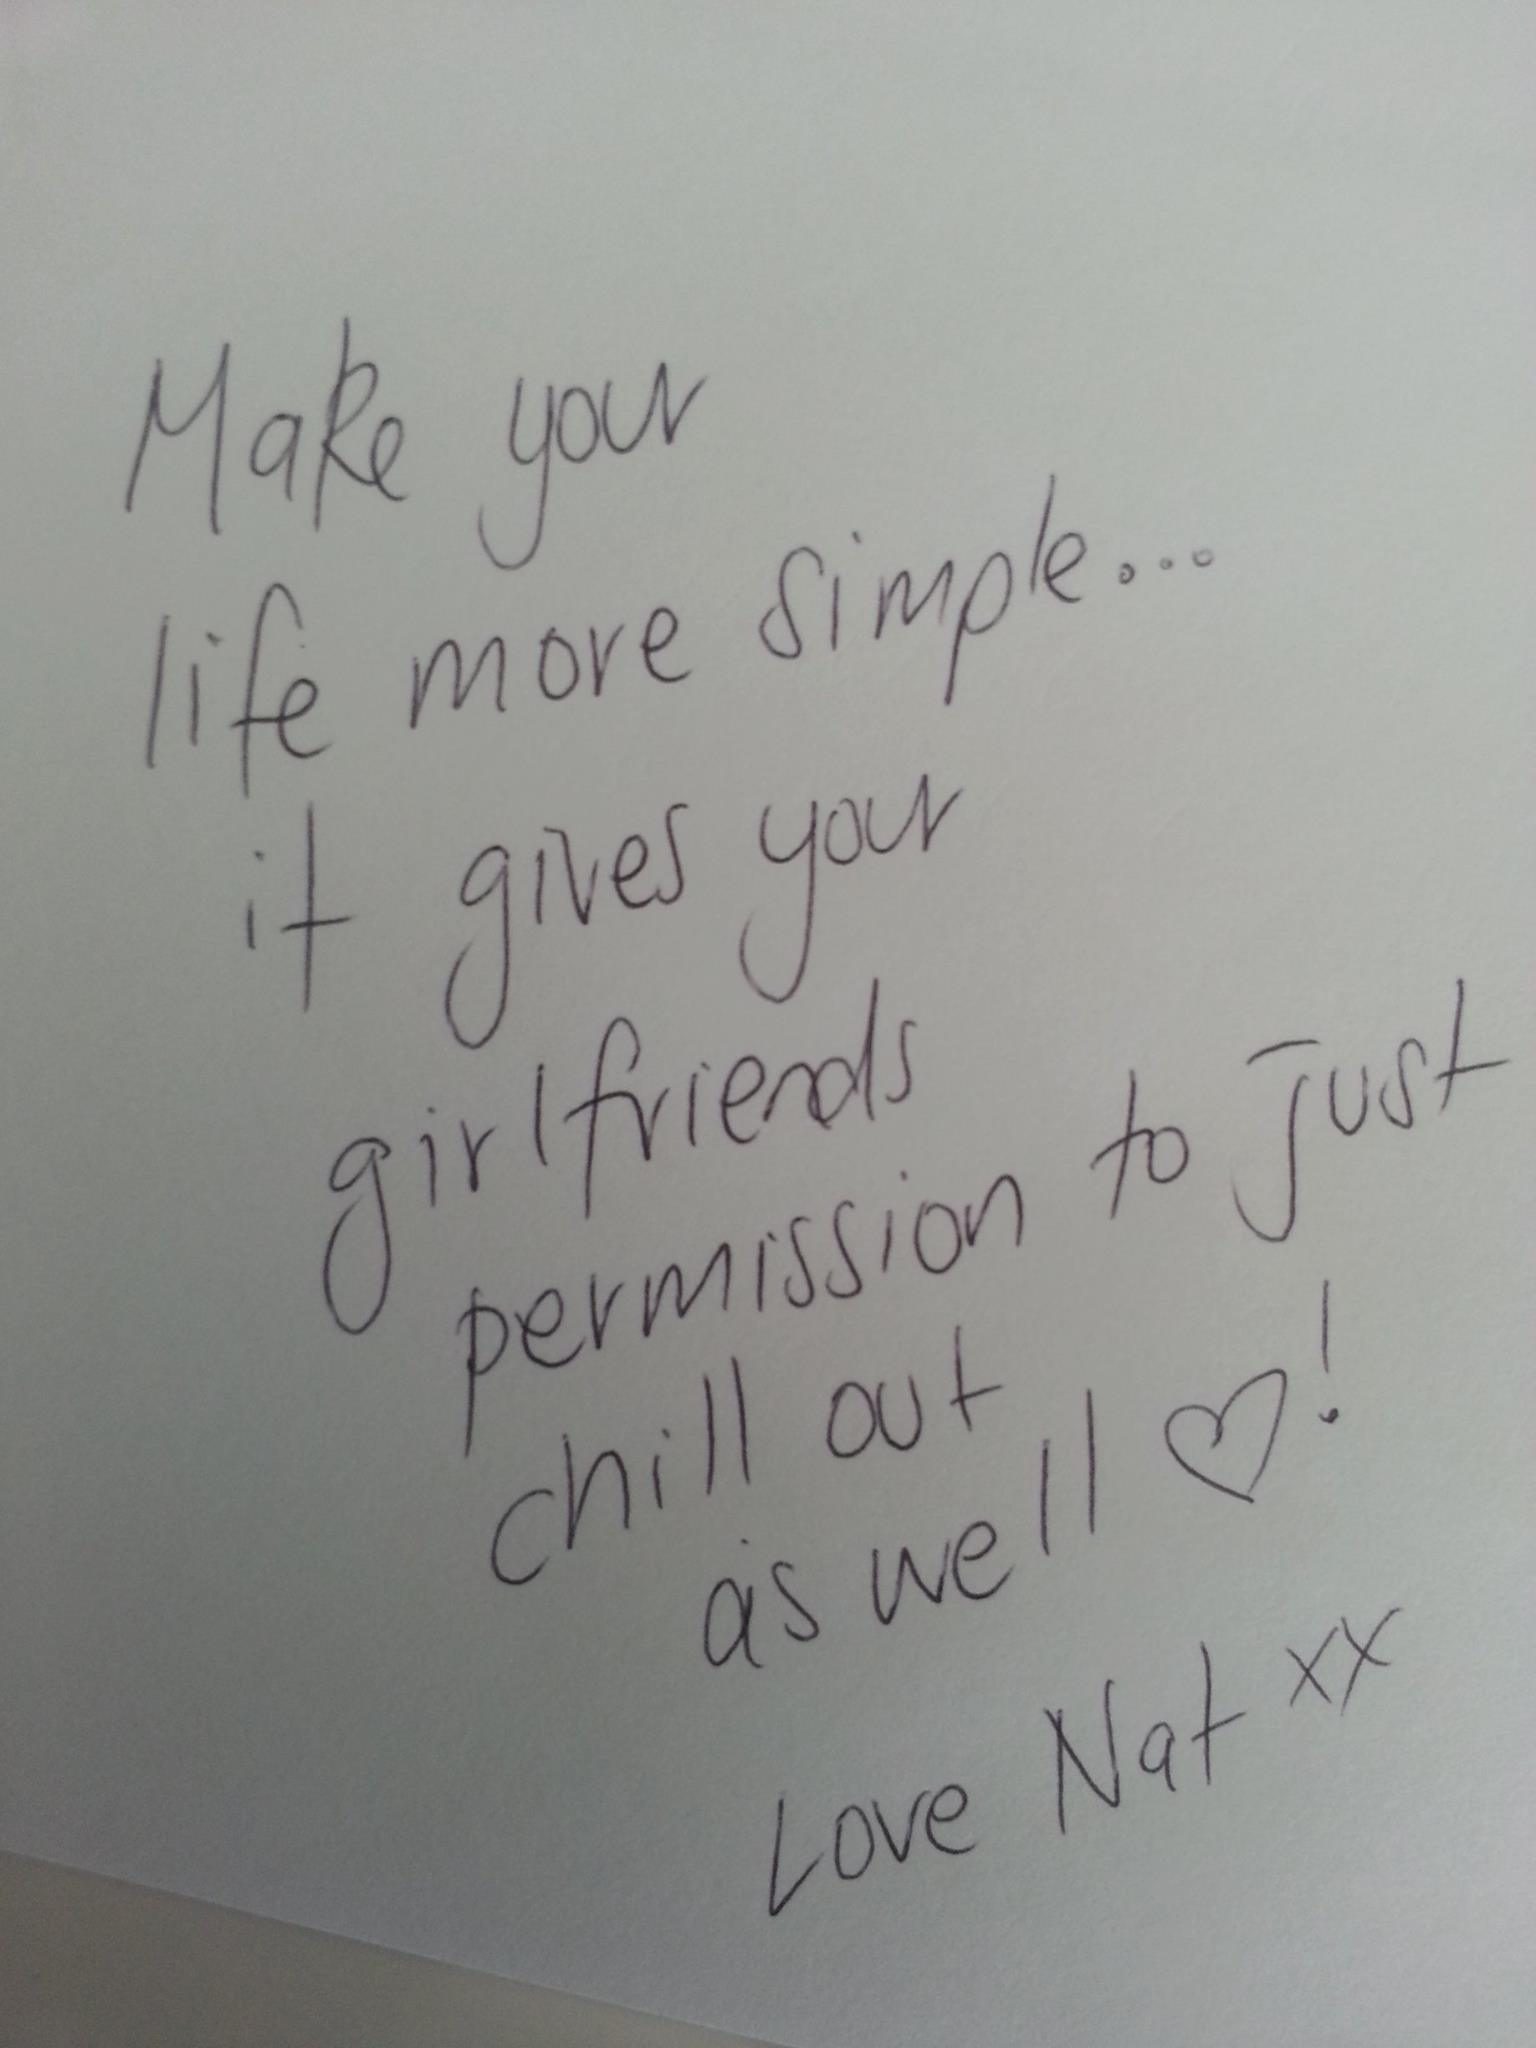 Make your
life more simple...
it gives your
girlfriends
permission to just
chill out
as well ♡!
Love Nat xx